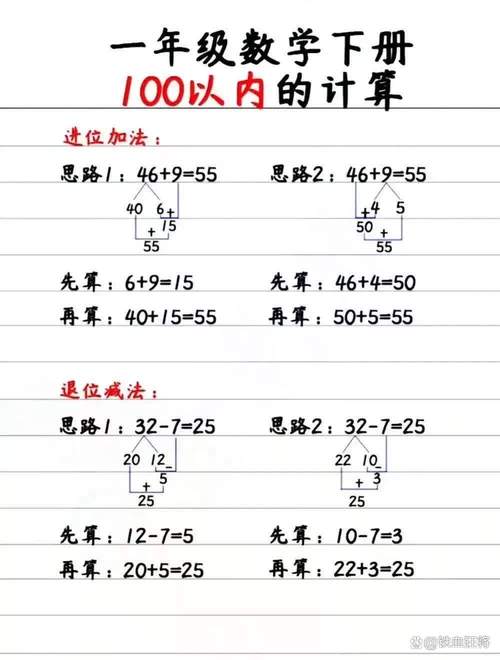 一年级数学下册
100以内的计算
进位加法：
思路1：46+9=55
40 6 +
15
+
55
先算：6+9=15
再算：40+15=55
思路2：46+9=55
+ 4 5
50
+
55
先算：46+4=50
再算：50+5=55
退位减法：
思路1：32-7=25
20 12 -
5
+
25
先算：12-7=5
再算：20+5=25
思路2：32-7=25
22 10 -
+ 3
25
先算：10-7=3
再算：22+3=25